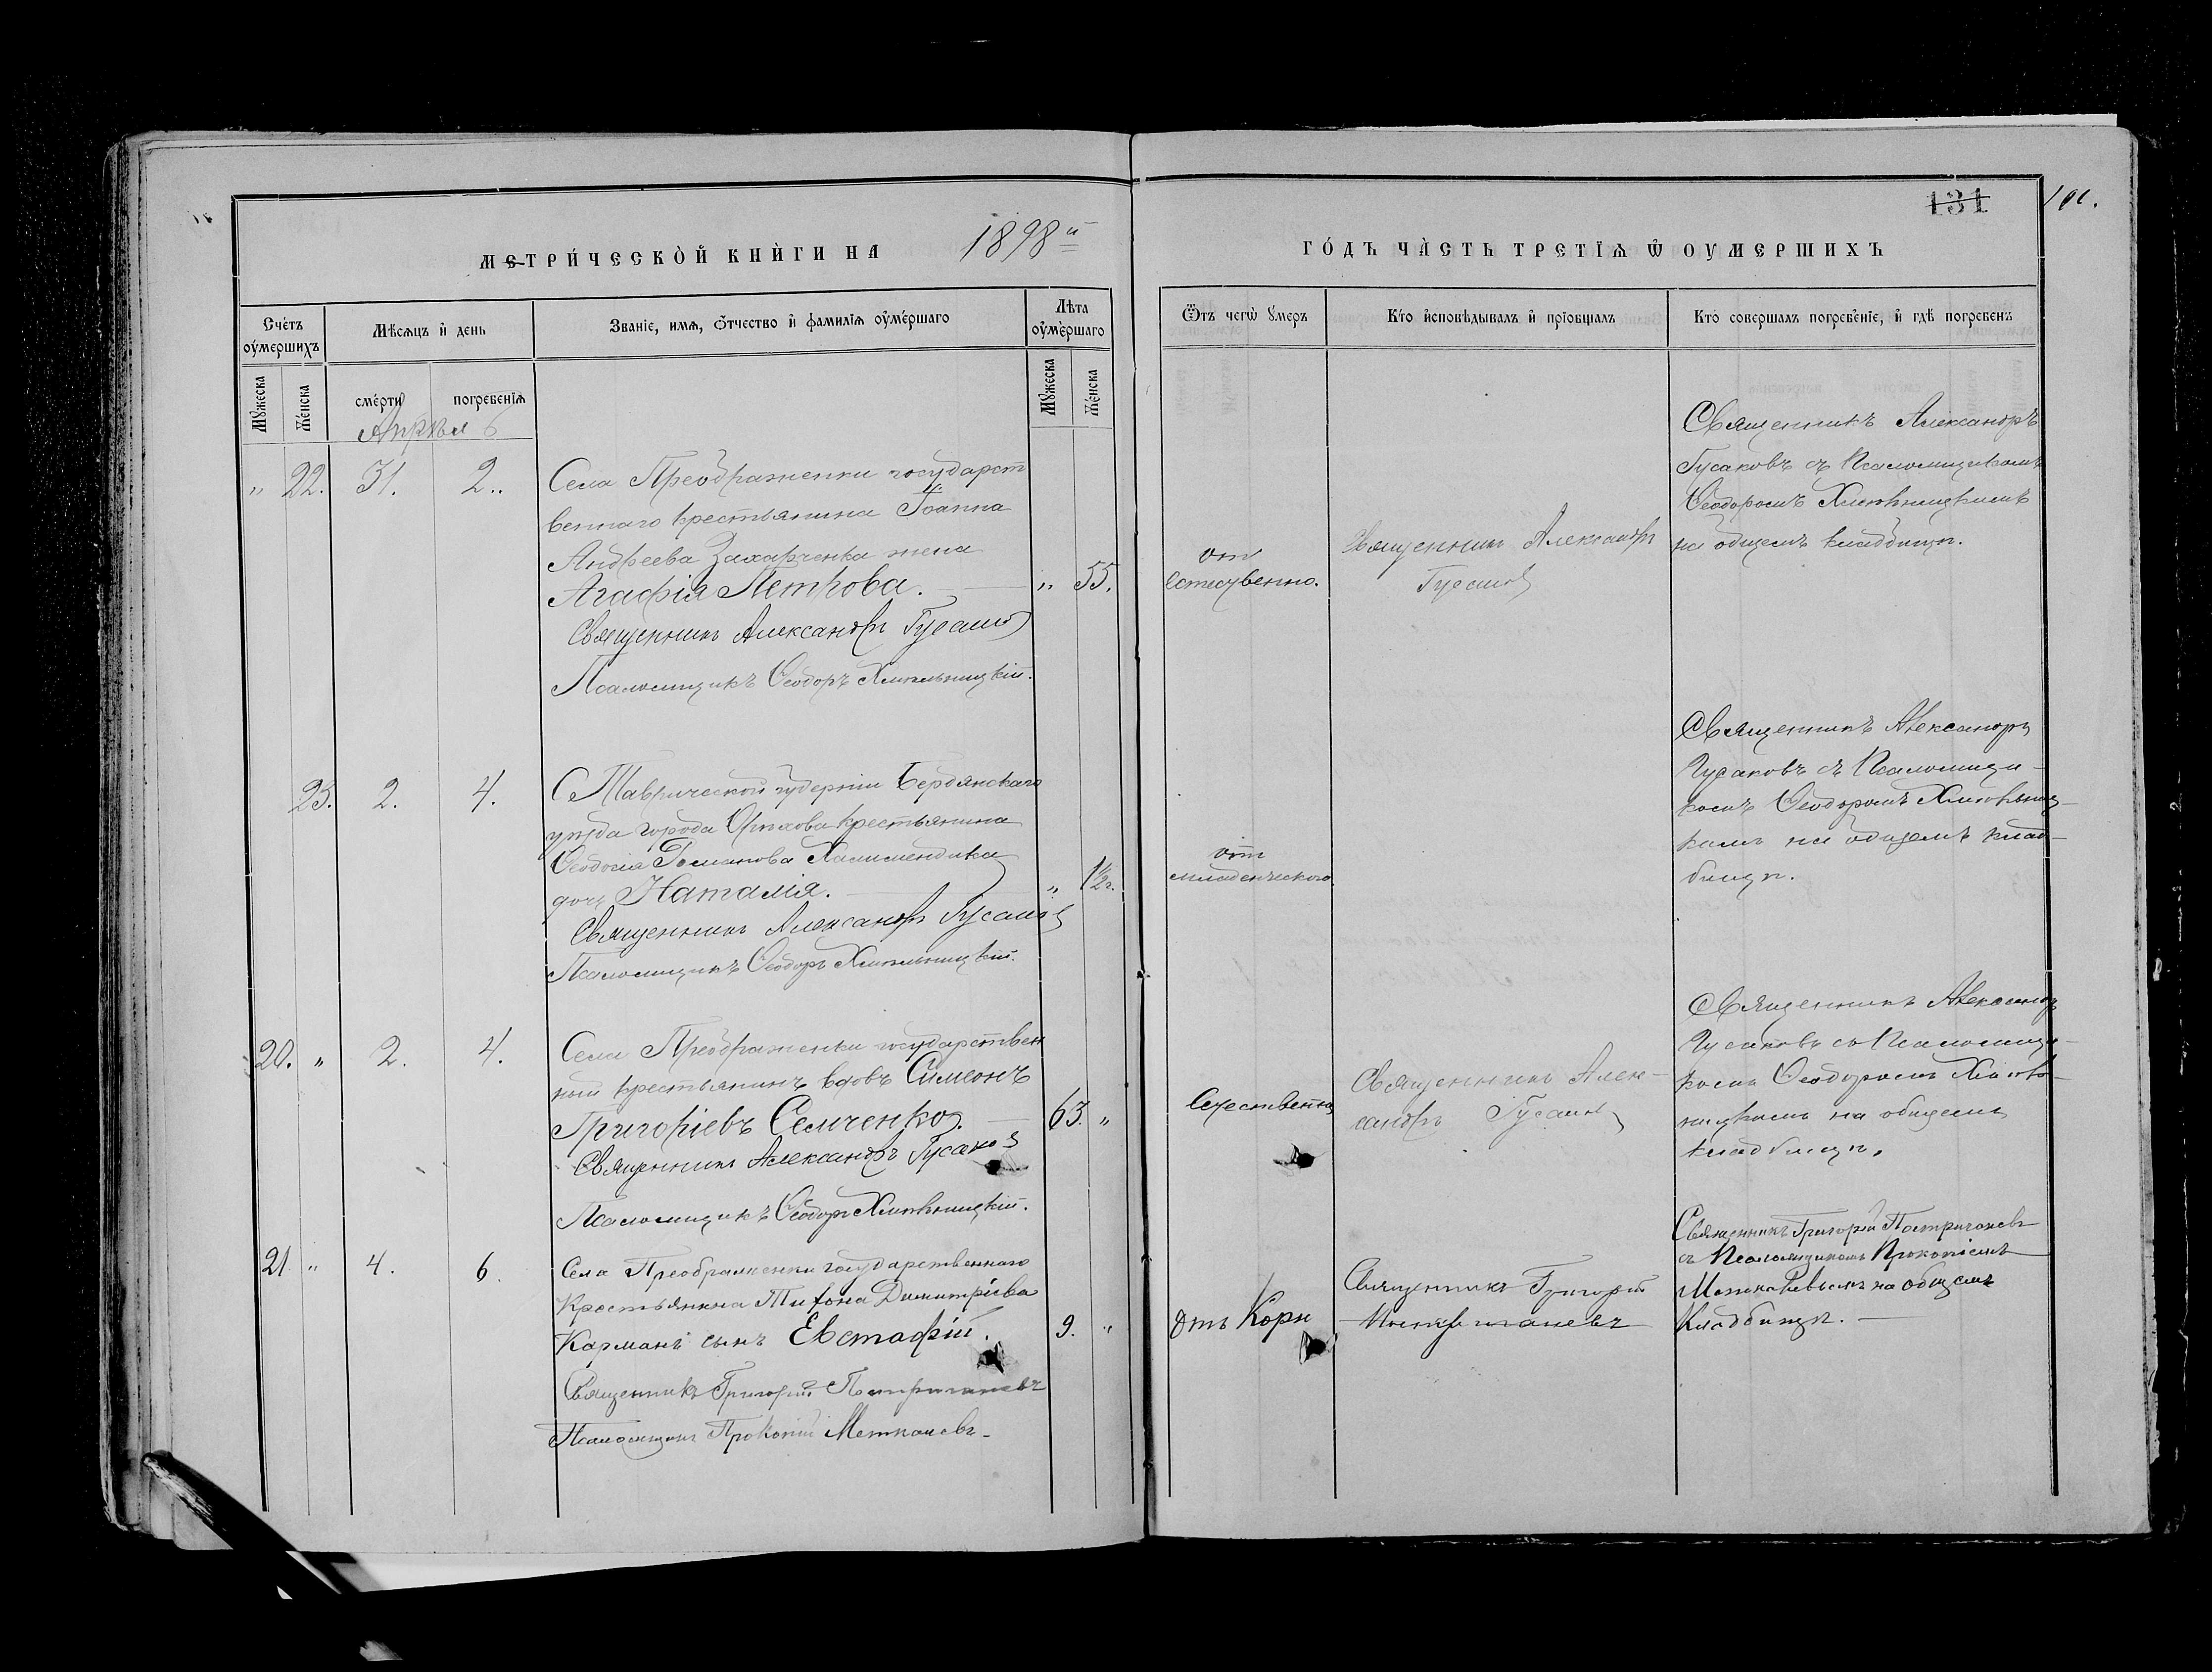 131
МЕТРИ́ЧЕСКО́Й КНИ́ГИ НА 1898й
ГО́ДЪ ЧА́СТЬ ТРЕТІѦ Ѡ ОУМЕРШИХЪ
Сче́тъ оу́мершихъ
Мѣ́сяцъ и҆ день
Зва́нїе, имѧ, ѻ҆́тчество и҆ фами́лїѧ оу҆ме́ршаго
Лѣта оу҆ме́ршаго
Ѿтъ чегѡ̀ ᲂумеръ
Кто̀ и҆сповѣ́дывалъ и҆ прїобща́лъ
Кто̀ соверша́лъ погребе́нїе, и҆ гдѣ̀ погребе́нъ
Мꙋ́жеска
Же́нска
сме́рти
погребе́нїѧ
Мꙋ́жеска
Же́нска
Апрѣль
" 22. 31. 2..
Села Преображенки государст
веннаго крестьянина Іоанна
Андреева Захарченка жена
Агафія Петрова. " 55.
Священникъ Александръ Гусаковъ
Псаломщикъ Ѳеодоръ Хмѣльницкій.
отъ
естественно.
Священникъ Александръ
Гусаковъ
Священникъ Александръ
Гусаковъ съ Псаломщикомъ
Ѳеодоромъ Хмѣльницкимъ
на общемъ кладбищѣ.
23. 2. 4.
Таврической губерніи Бердянскаго
уѣзда города Орѣхова крестьянина
Ѳеодосія Романова
дочь Наталія. " 1½г.
Священникъ Александръ Гусаковъ
Псаломщикъ Ѳеодоръ Хмѣльницкій.
отъ
младенческаго.
Священникъ Александръ
Гусаковъ съ Псаломщи-
комъ Ѳеодоромъ Хмѣльниц-
кимъ на общемъ клад-
бищѣ.
20. " 2. 4.
Села Преображенки государствен
ный крестьянинъ вдовъ Симеонъ
Григоріевъ Семченко. 63. "
Священникъ Александръ Гусаковъ
Псаломщикъ Ѳеодоръ Хмѣльницкій.
Естественно
Священникъ Алек-
сандръ Гусаковъ
Священникъ Александръ
Гусаковъ съ Псаломщи-
комъ Ѳеодоромъ Хмѣль-
ницкимъ на общемъ
кладбищѣ.
21. " 4. 6.
Села Преображенки государственнаго
Крестьянина Тихона Димитріева
Карманъ сынъ Евстафій. 9. "
Священникъ Григорій
Псаломщикъ Прокопій
Отъ Кори
Священникъ Григорій
Священникъ Григорій
съ Псаломщикомъ Прокопіемъ
на общемъ
Кладбищѣ.